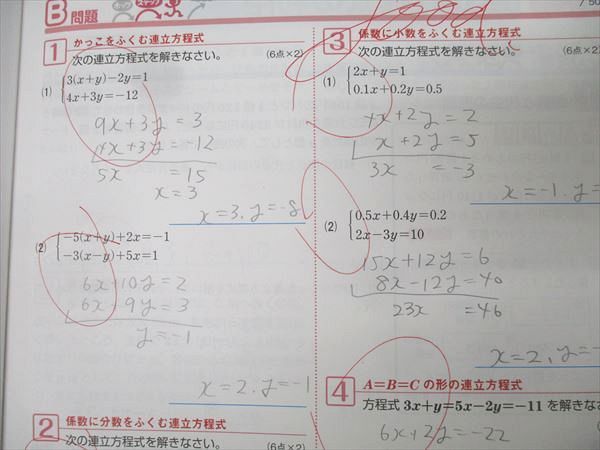 B 問題
1 かっこをふくむ連立方程式
次の連立方程式を解きなさい。 (6点×2)
(1) 3(x+y)-2y=1
4x+3y=-12
9x+3y=3
4x+3y=-12
5x =15
x=3
x=3, y=-8
(2) -5(x+y)+2x=-1
-3(x-y)+5x=1
6x+10y=2
6x+9y=3
y=-1
x=2, y=-1
2 係数に分数をふくむ連立方程式
次の連立方程式を解きなさい。 (6点×2)
Good
/50
3 係数に小数をふくむ連立方程式
次の連立方程式を解きなさい。 (6点×2)
(1) 2x+y=1
0.1x+0.2y=0.5
4x+2y=2
x+2y=5
3x =-3
x=-1, y=
(2) 0.5x+0.4y=0.2
2x-3y=10
15x+12y=6
8x-12y=40
23x =46
x=2, y=-
4 A=B=Cの形の連立方程式
方程式 3x+y=5x-2y=-11 を解きな
6x+2y=-22